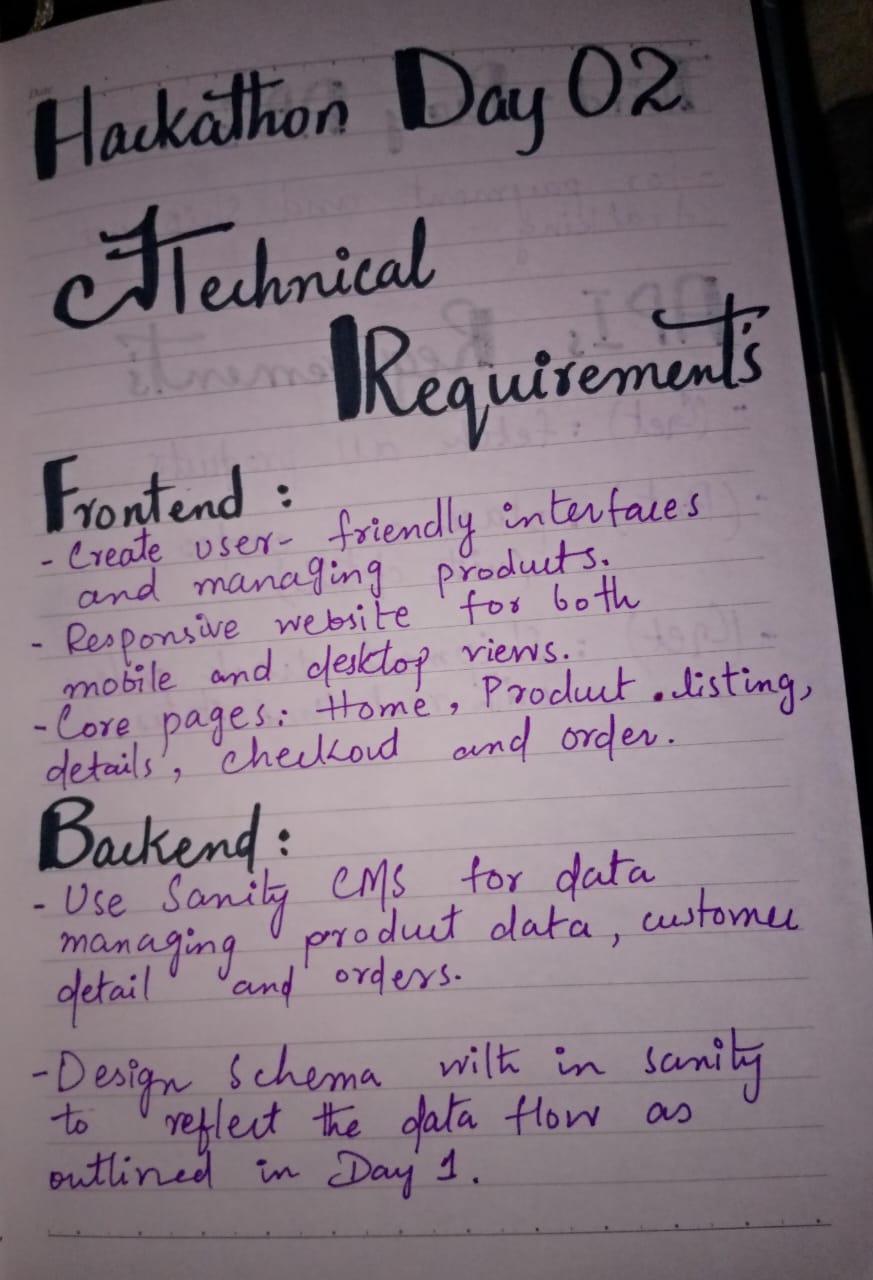 Hackathon Day 02
Technical
Requirements
Frontend :
- Create user- friendly interfaces
and managing products.
- Responsive website for both
mobile and desktop views.
- Core pages: Home, Product listing,
details, checkout and order.
Backend :
- Use Sanity CMS for data
managing product data, customer
detail and orders.
- Design schema with in sanity
to reflect the data flow as
outlined in Day 1.